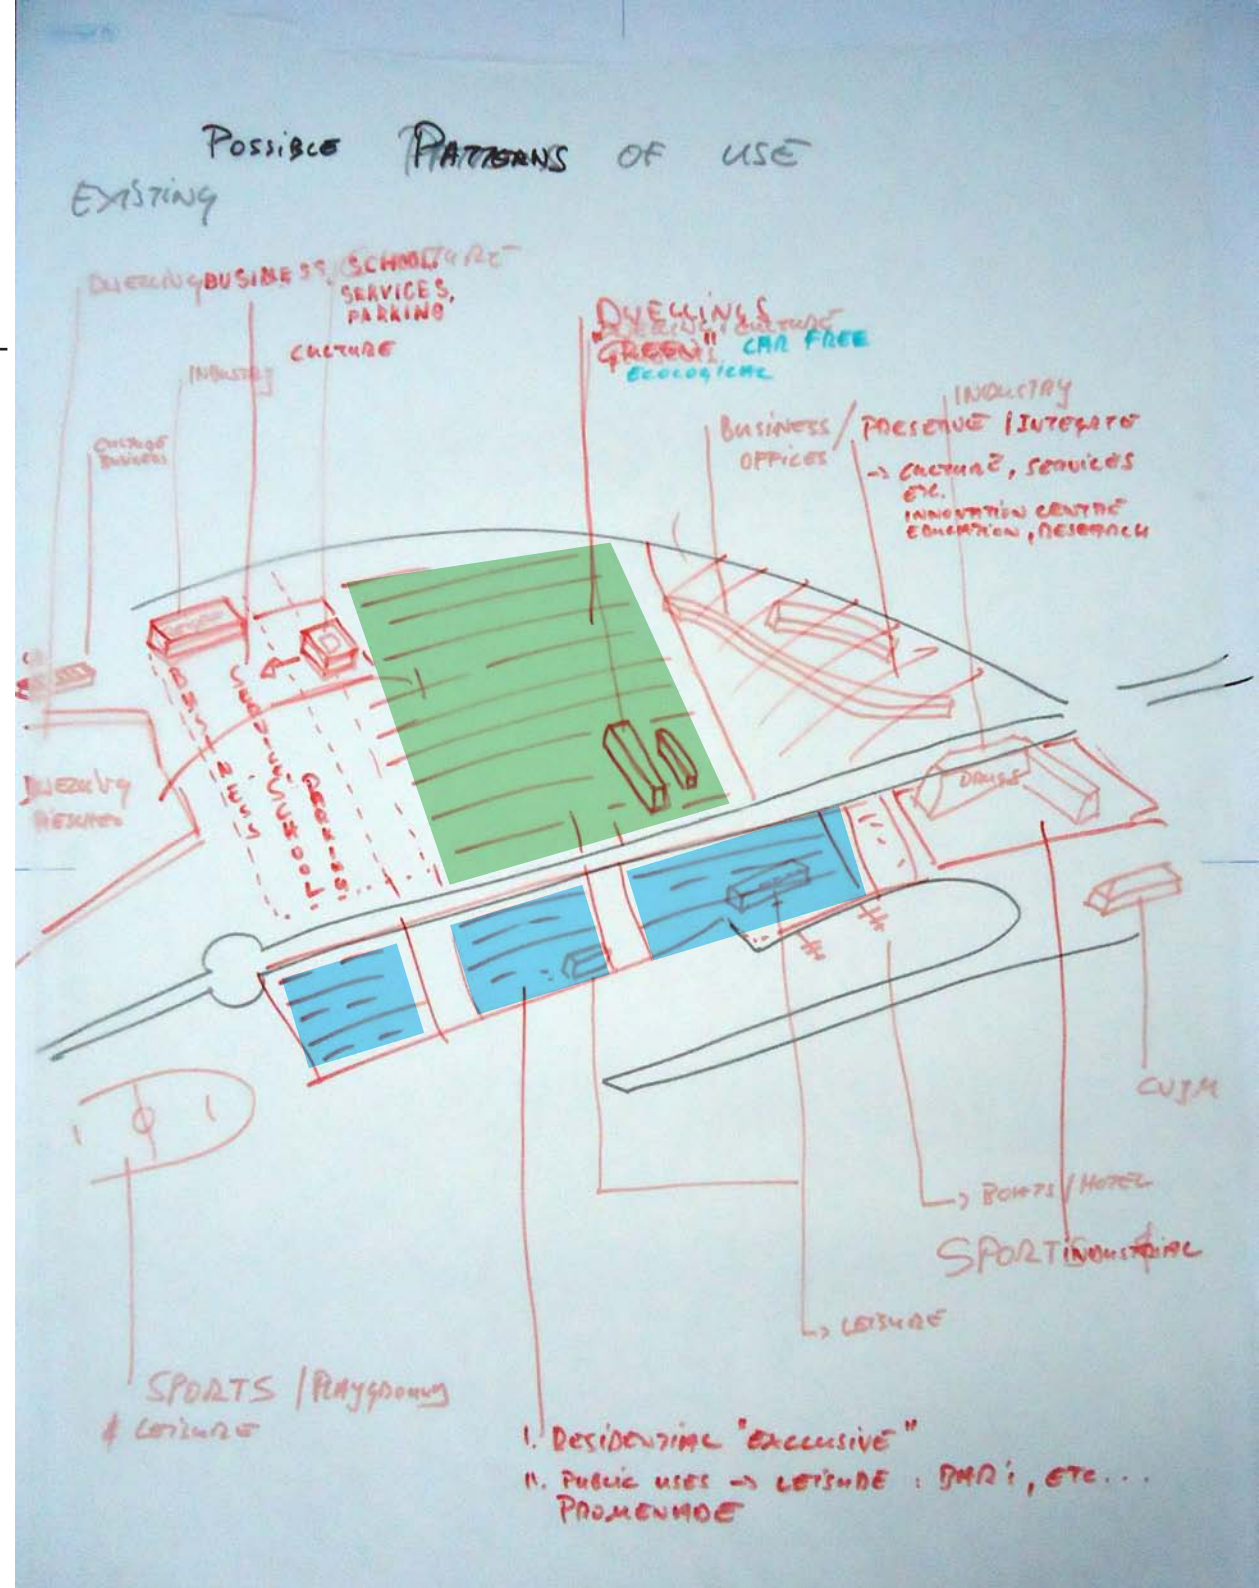 POSSIBLE PATTERNS OF USE
EXISTING
BUSINESS,
SCHOOL,
SERVICES,
PARKING
CULTURE
INDUSTRY
DWELLINGS
"GREEN" CAR FREE
ECOLOGICAL
INDUSTRY
BUSINESS/
OFFICES
PRESERVE / INTEGRATE
-> CULTURE, SERVICES
ETC.
INNOVATION CENTRE
EDUCATION, RESEARCH
BUSINESS
SERVICE, SCHOOL
PARKING
-> BOATS / HOTEL
SPORT
INDUSTRIAL
-> LEISURE
SPORTS / PLAYGROUND
& LEISURE
I. RESIDENTIAL "EXCLUSIVE"
II. PUBLIC USES -> LEISURE : BAR, ETC...
PROMENADE